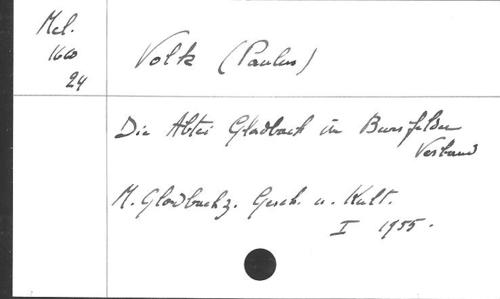 Mel.
1660
24
Volk (Paulus)
Die Abtei Gladbach im Bursfelder
Verband
M. Gladbach z. Gesch. u. Kult.
I 1955.